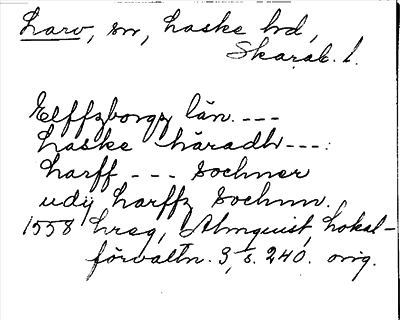 Larv, sn, Laske hd,
Skarab. l.
Elffzborgz län. ---
Laske häradh ---:
Larff --- Sochner
udij Larffz Sochnn.
1558 hreg, Almquist, Lokal-
förvaltn. 3, s. 240. orig.